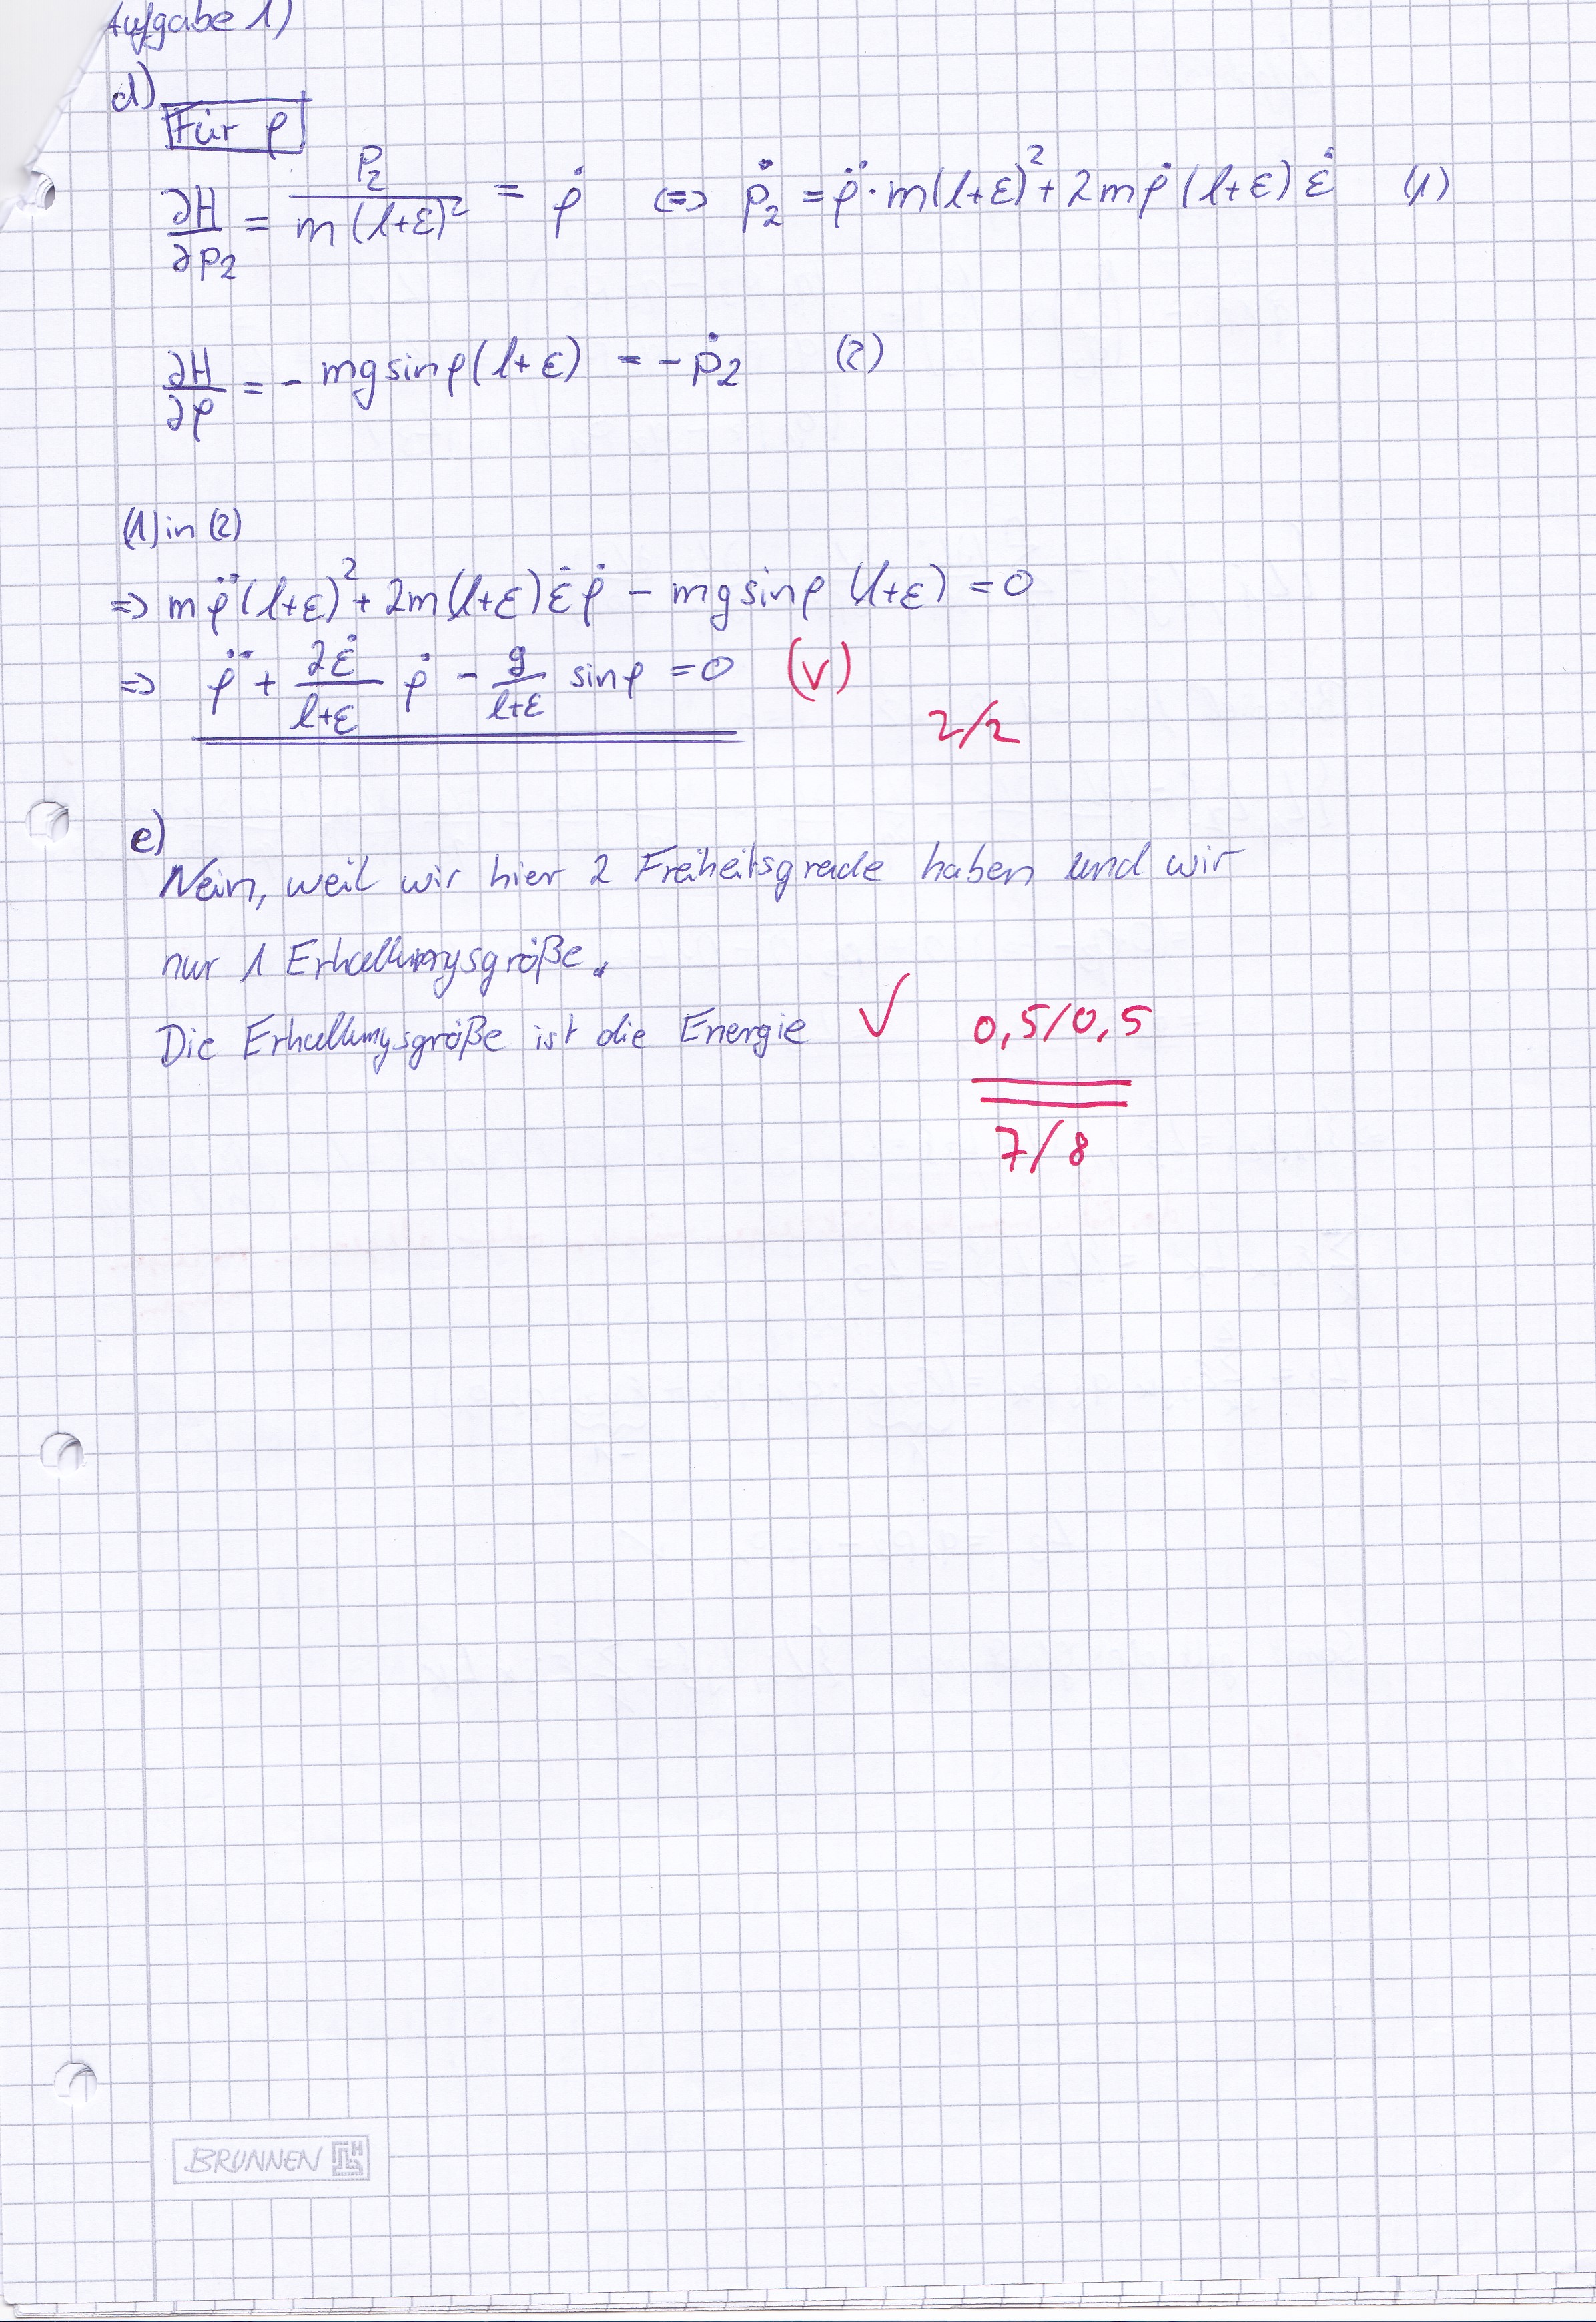 Aufgabe 1)
d)
Für φ
∂H/∂p₂ = p₂/(m(l+ε)²) = φ̇ ⇔ ṗ₂ = φ̈·m(l+ε)² + 2mφ̇(l+ε)ε̇ (1)
∂H/∂φ = - mg sinφ(l+ε) = - ṗ₂ (2)
(1) in (2)
⇒ mφ̈(l+ε)² + 2m(l+ε)ε̇φ̇ - mg sinφ (l+ε) = 0
⇒ φ̈ + 2ε̇/(l+ε) φ̇ - g/(l+ε) sinφ = 0 (√)
2/2
e)
Nein, weil wir hier 2 Freiheitsgrade haben und wir
nur 1 Erhaltungsgröße.
Die Erhaltungsgröße ist die Energie ✓ 0,5/0,5
7/8
BRUNNEN